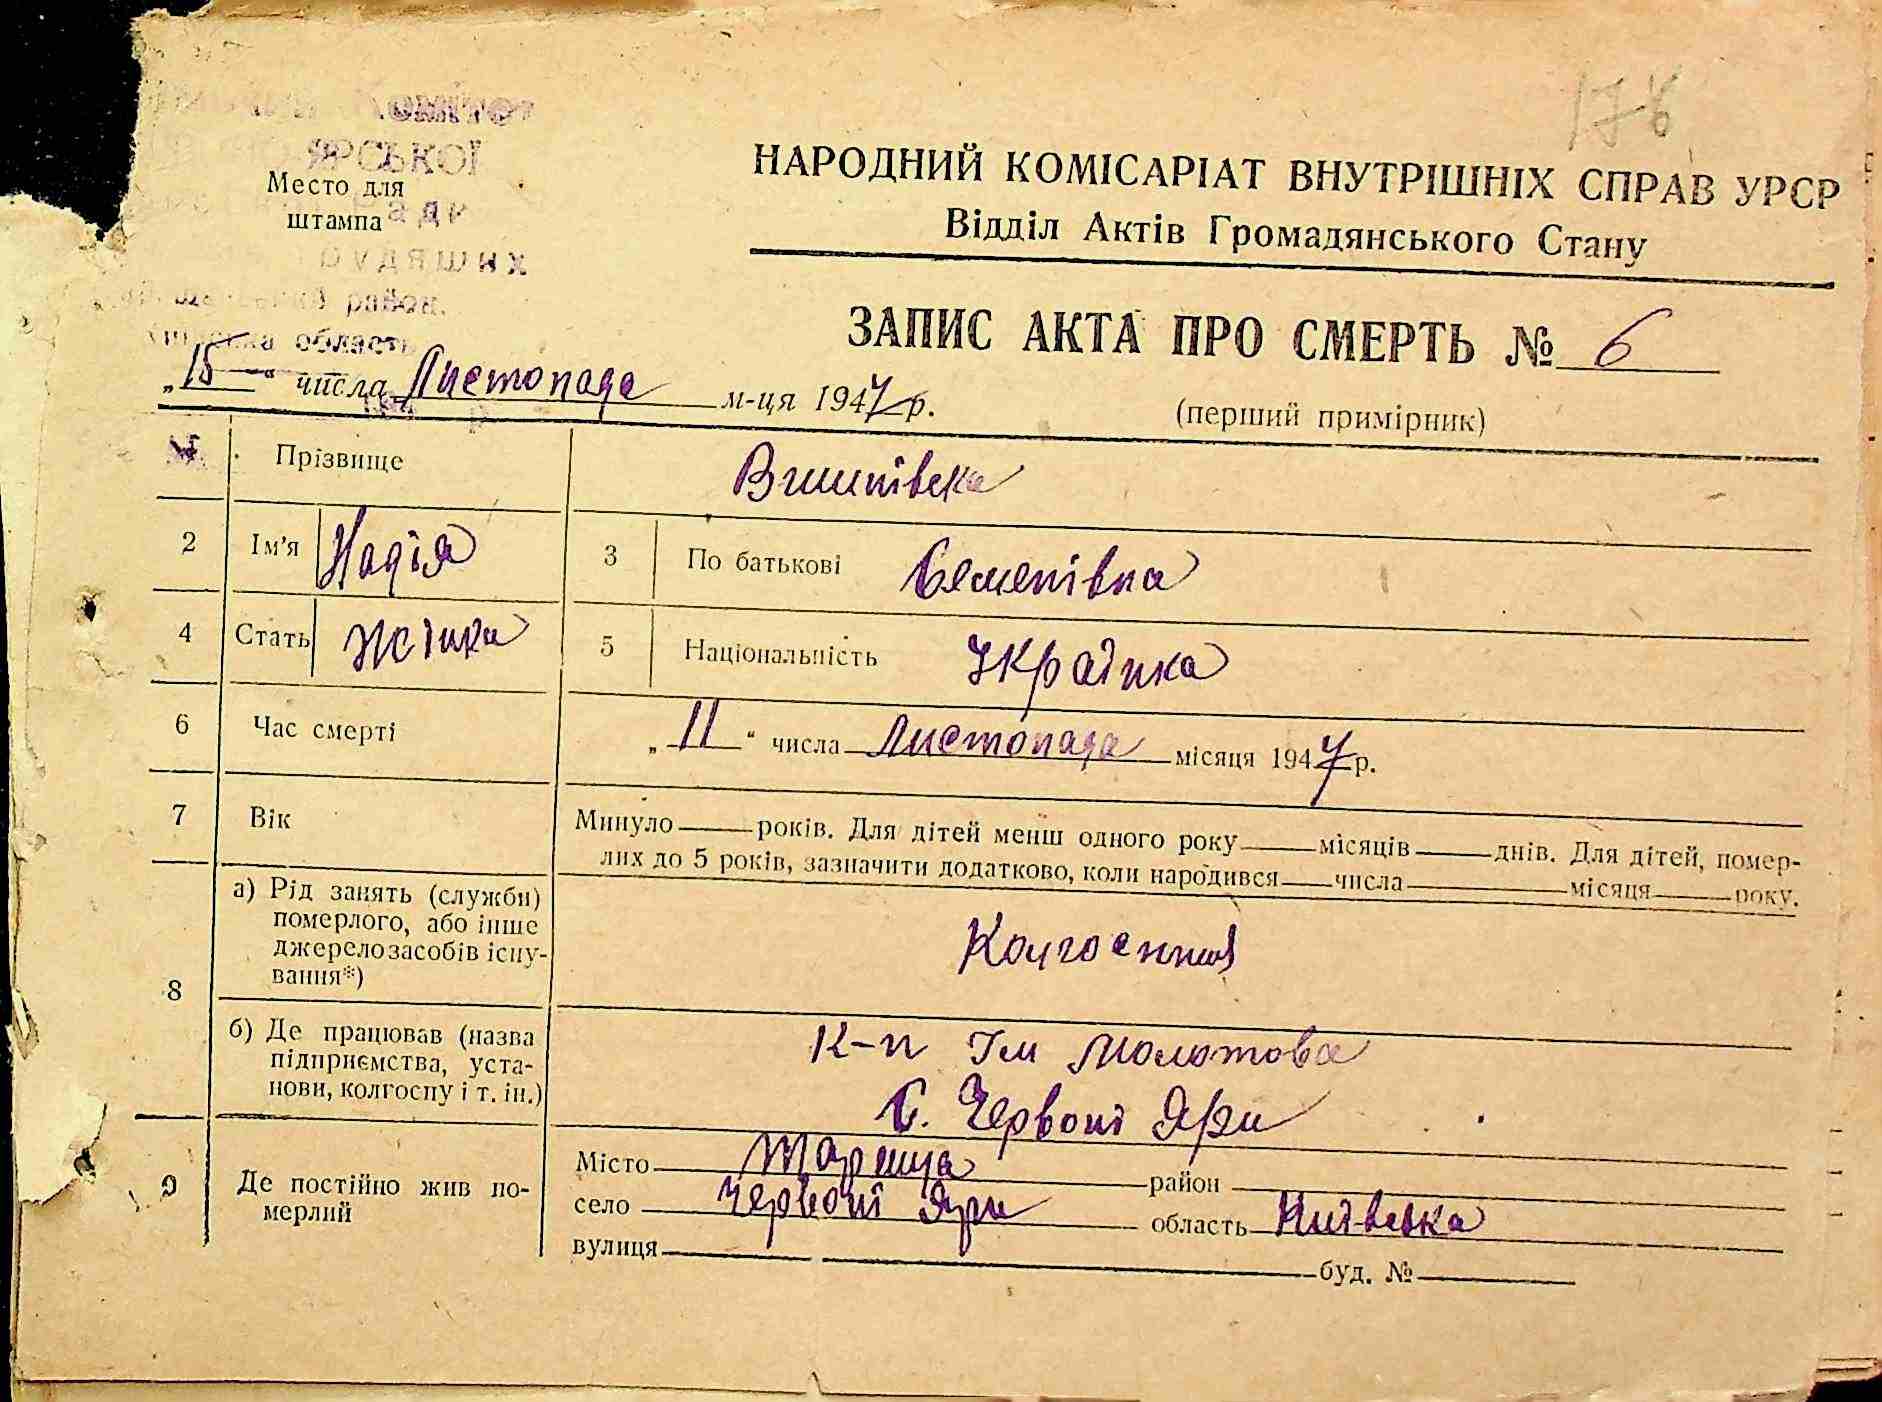 178
ЯРСЬКОЇ
Место для
штампа
район.
НАРОДНИЙ КОМІСАРІАТ ВНУТРІШНІХ СПРАВ УРСР
Відділ Актів Громадянського Стану
ЗАПИС АКТА ПРО СМЕРТЬ № 6
„15“ числа Листопада м-ця 1947 р.
(перший примірник)
Прізвище
2 Ім'я Надія 3 По батькові Семенівна
4 Стать жінка 5 Національність Українка
6 Час смерті „11“ числа Листопада місяця 1947 р.
7 Вік Минуло років. Для дітей менш одного року місяців днів. Для дітей, помер-
лих до 5 років, зазначити додатково, коли народився числа місяця року.
8 а) Рід занять (служби)
померлого, або інше
джерело засобів існу-
вання*)
Колгоспниця
б) Де працював (назва
підприємства, уста-
нови, колгоспу і т. ін.)
К-п Ім Молотова
С. Червоні Яри
9 Де постійно жив по-
мерлий
Місто район
село Червоні Яри область Київська
вулиця буд. №